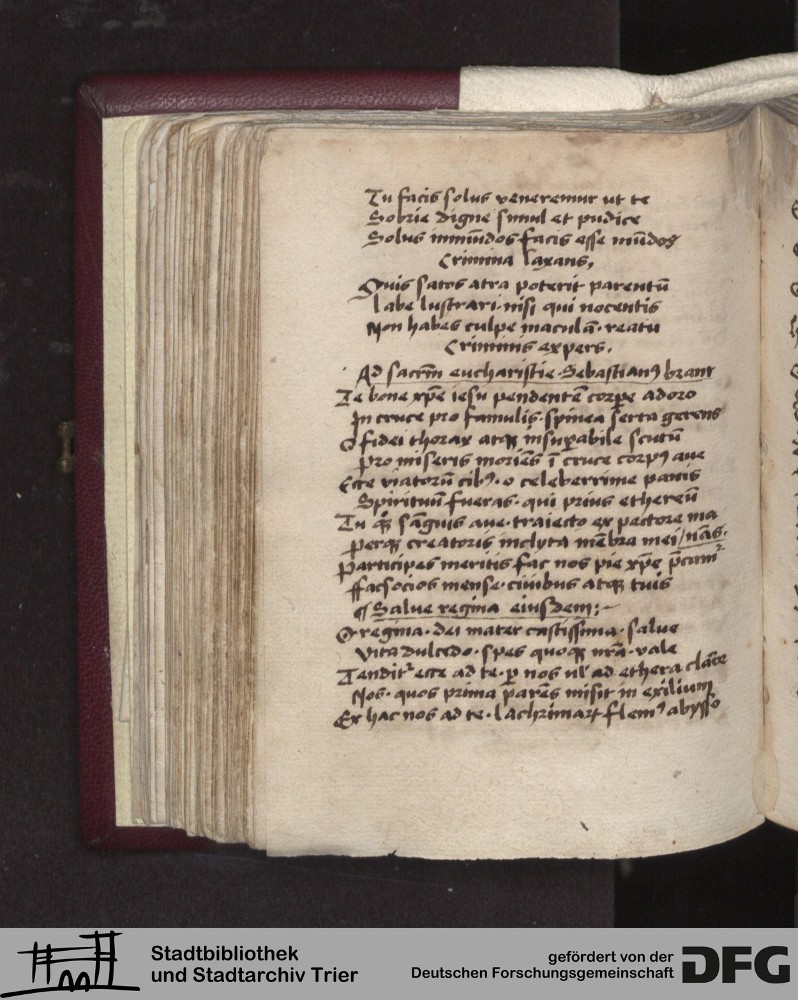 Tu facis solus veneremur ut te
Sobrie digne simul et pudice
Solus immūdos facis esse mūdos
Crimina laxans,
Quis satos atra poterit parentū
labe lustrari nisi qui nocentis
Non habes culpe maculā · reatu
Criminis expers.
Ad sacrm̄ eucharistie Sebastianꝰ brant
Te bone xp̄e iesu pendentē corpe adoro
In cruce pro famulis · spinea serta gerens
O fidei thorax atqꝫ insupabile scutū
Pro miseris moriēs ī cruce corpꝰ aue
Ecce viatorū cibꝰ · o celeberrime panis
Spirituū fueras · qui prius ethereū
Tu qꝫ sāguis aue · traiecto ex pectore ma
Perqꝫ creatoris inclyta mēbra mei /nās.
Participes meritis fac nos pie xp̄e
ffac socios mense · ciuibus atqꝫ tuis
¶ Salue regina eiusdem :-
O regina · dei mater castissima · salue
Vita dulcedo · spes quoqꝫ nrā · vale
Tendit ecce ad te · p̲ nos ad ethera
Nos · quos prima parēs misit in exilium
Ex hac nos ad te · lachrimaꝝ flemꝰ abysso
Stadtbibliothek
und Stadtarchiv Trier
gefördert von der
Deutschen Forschungsgemeinschaft
DFG